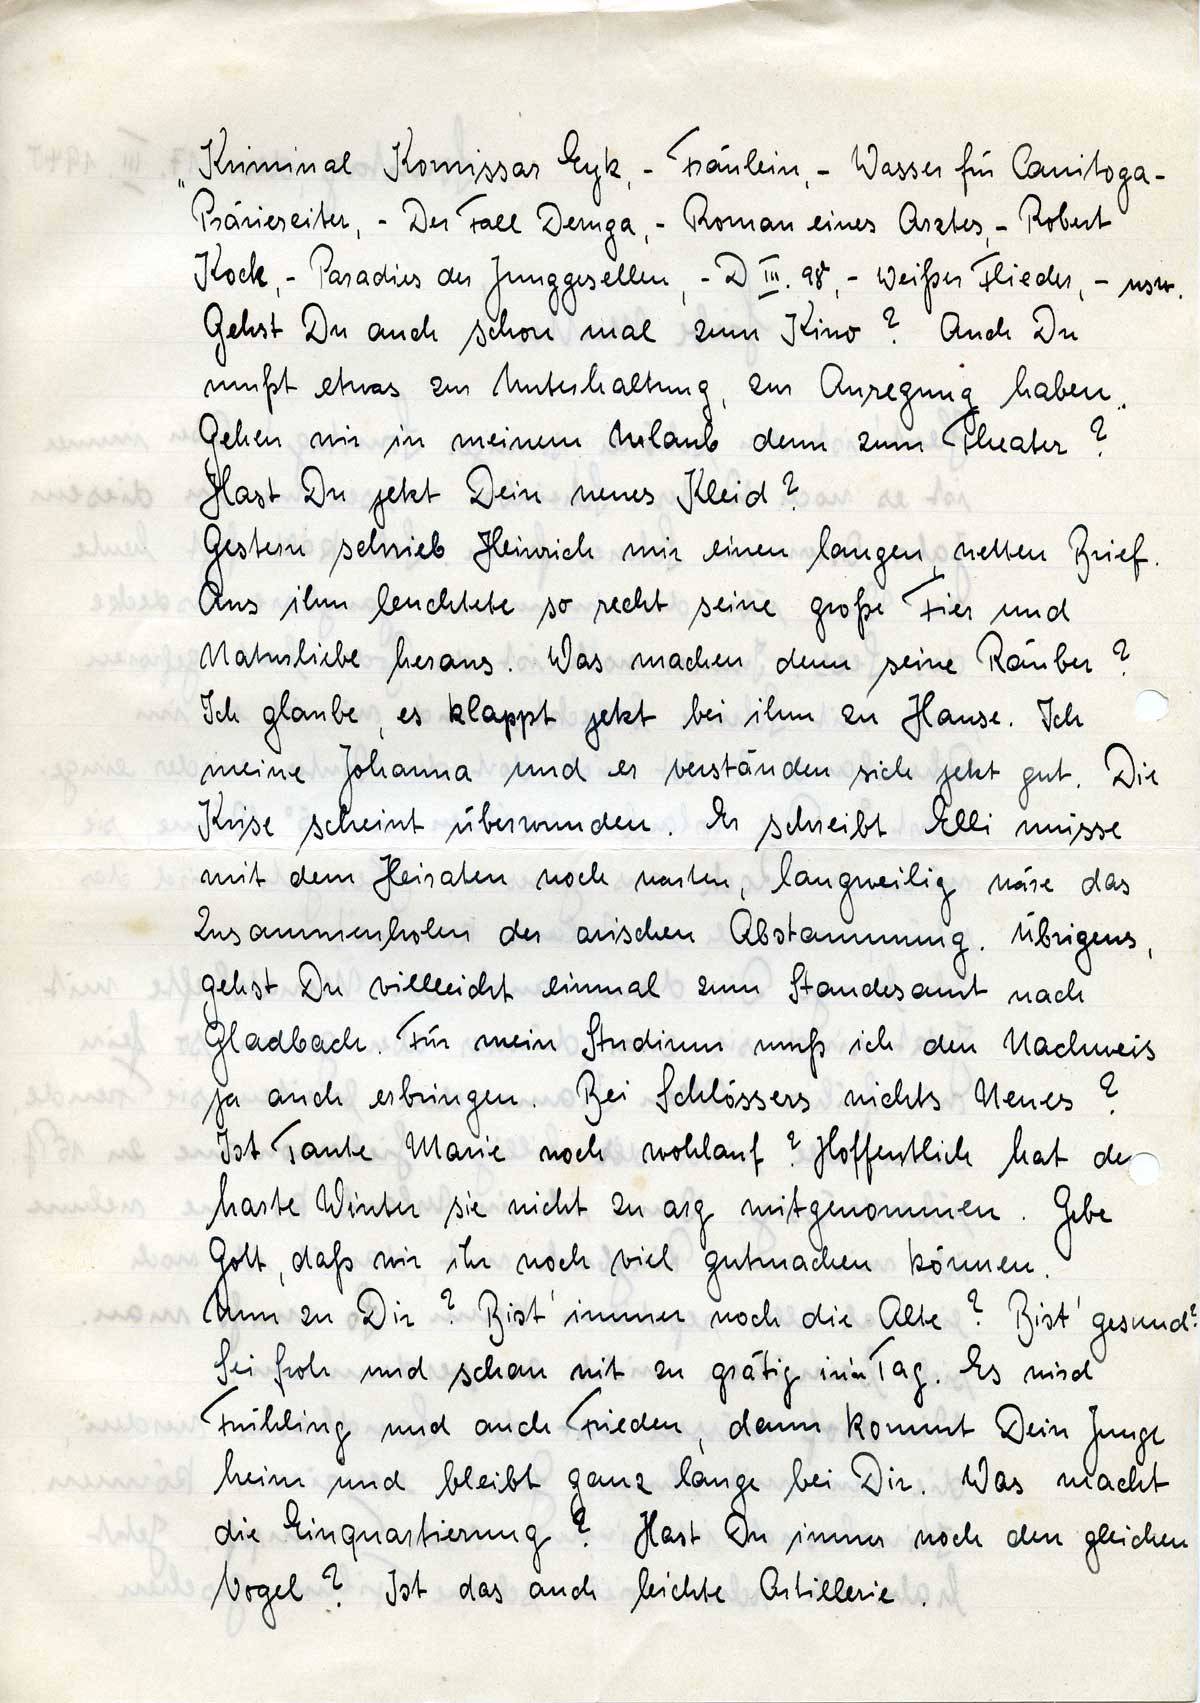 „Kriminal Komissar Eyk, - Fräulein, - Wasser für Canitoga -
Präriereiter, - Der Fall Deruga, - Roman eines Arztes, - Robert
Kock, - Paradies der Junggesellen, - D III. 98, - Weißer Flieder, - usw.
Gehst Du auch schon mal zum Kino? Auch Du
mußt etwas zur Unterhaltung, zur Anregung haben.
Gehen wir in meinem Urlaub denn zum Theater?
Hast Du jetzt Dein neues Kleid?
Gestern schrieb Heinrich mir einen langen, netten Brief.
Aus ihm leuchtete so recht seine große Tier und
Naturliebe heraus. Was machen denn seine Räuber?
Ich glaube, es klappt jetzt bei ihm zu Hause. Ich
meine Johanna und er verständen sich jetzt gut. Die
Krise scheint überwunden. Er schreibt Elli müsse
mit dem Heiraten noch warten, langweilig wäre das
Zusammenholen der arischen Abstammung. Übrigens,
gehst Du villleicht einmal zum Standesamt nach
Gladbach. Für mein Studium muß ich den Nachweis
ja auch erbringen. Bei Schlössers nichts Neues?
Ist Tante Marie noch wohlauf? Hoffentlich hat de
harte Winter sie nicht zu arg mitgenommen. Gebe
Gott, daß wir ihr noch viel gutmachen können.
Nun zu Dir? Bist' immer noch die Alte? Bist' gesund?
Sei froh und schau nit zu grätig in'n Tag. Es wird
Frühling und auch Frieden, dann kommt Dein Junge
heim und bleibt ganz lange bei Dir. Was macht
die Einquartierung? Hast Du immer noch den gleichen
Vogel? Ist das auch leichte Artillerie.